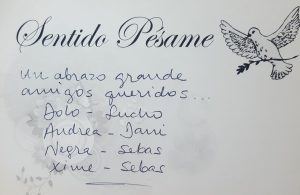 Sentido Pésame
Un abrazo grande
amigos queridos...
Dolo - Lucho
Andrea - Dani
Negra - Sebas
Xime - Sebas